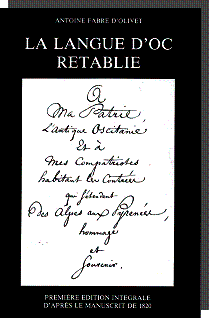 ANTOINE FABRE D'OLIVET
LA LANGUE D'OC
RETABLIE
A
Ma Patrie,
L'antique Oscitanie
Et à
Mes Compatriotes
habitant les Contrées
qui s'étendent
Des Alpes aux Pyrenées,
hommage
et
Souvenir.
PREMIÈRE ÉDITION INTÉGRALE
D'APRÈS LE MANUSCRIT DE 1820